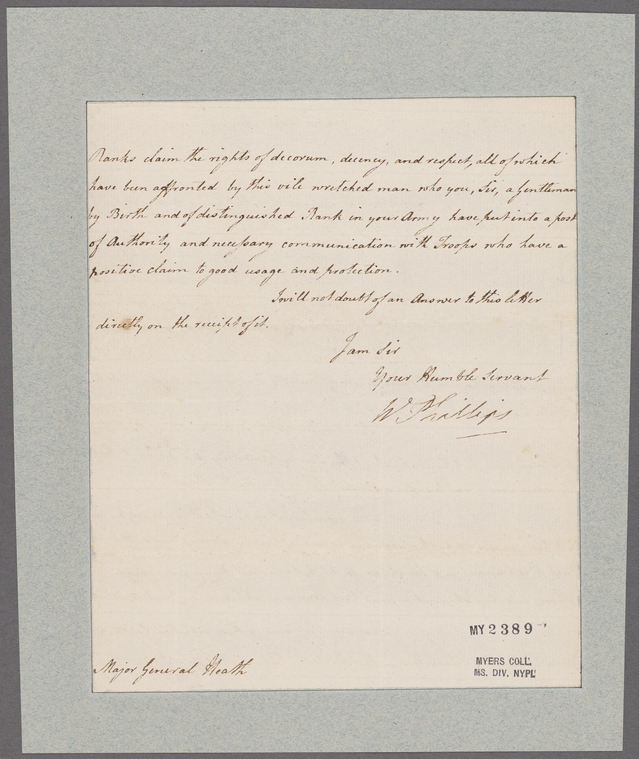 Ranks claim the rights of decorum, decency, and respect, all of which
have been affronted by this vile wretched man who you, Sir, a Gentleman
by Birth and of distinguished Rank in your Army have put into a post
of Authority and necessary communication with Troops who have a
positive claim to good usage and protection.
I will not doubt of an Answer to this letter
directly on the receipt of it.
I am Sir
Your Humble Servant
W Phillips
MY 2389
MYERS COLL.
MS. DIV. NYPL
Major General Heath